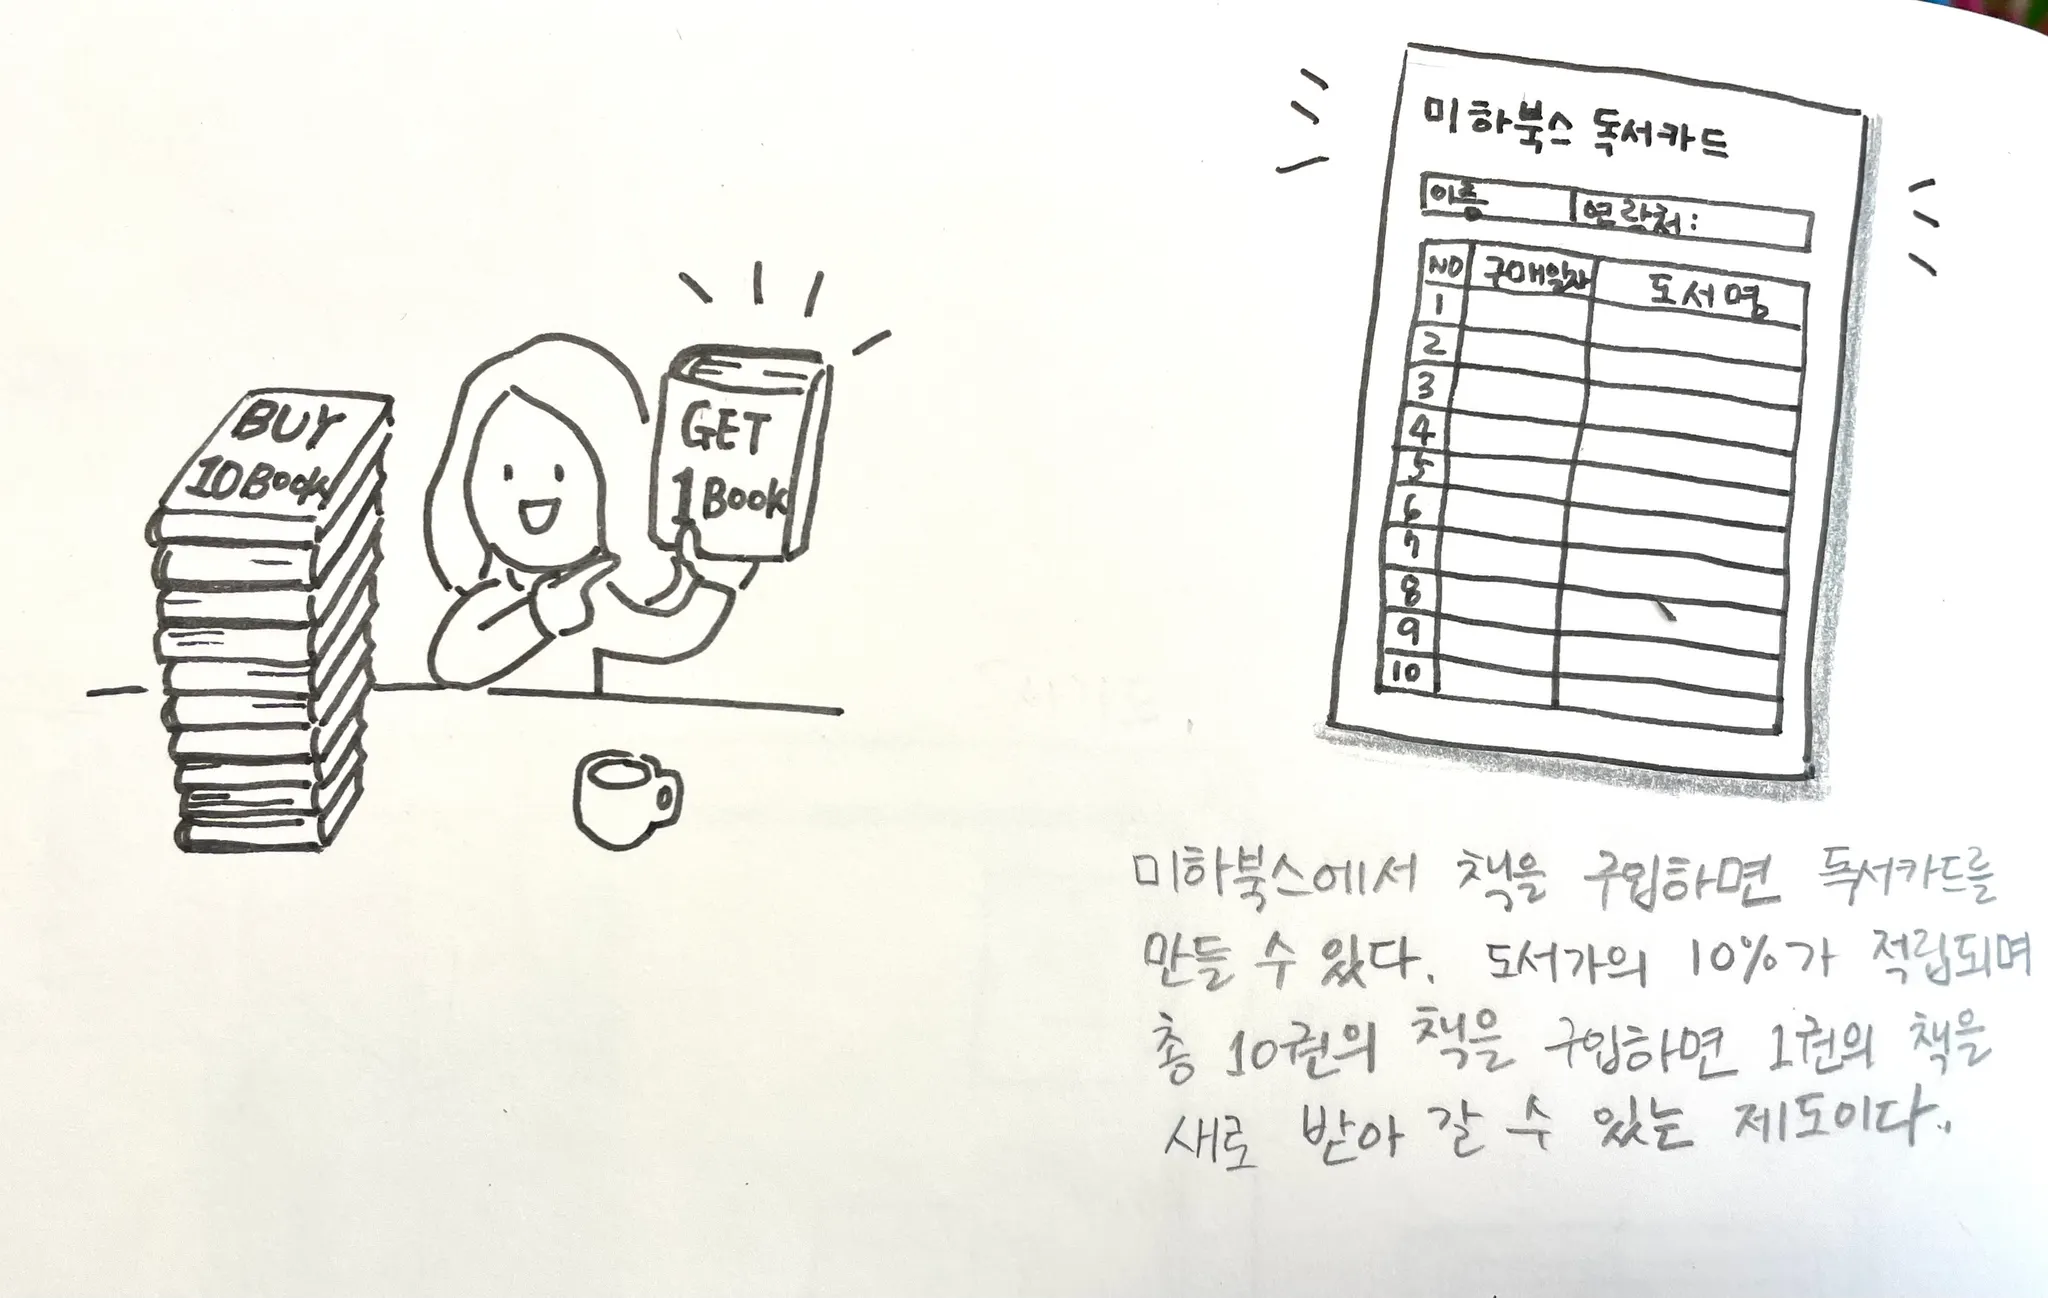 BUY
10 Book
GET
1 Book
미하북스 독서카드
이름 연락처:
NO 구매일자 도서명
1
2
3
4
5
6
7
8
9
10
미하북스에서 책을 구입하면 독서카드를
만들 수 있다. 도서가의 10%가 적립되며
총 10권의 책을 구입하면 1권의 책을
새로 받아 갈 수 있는 제도이다.